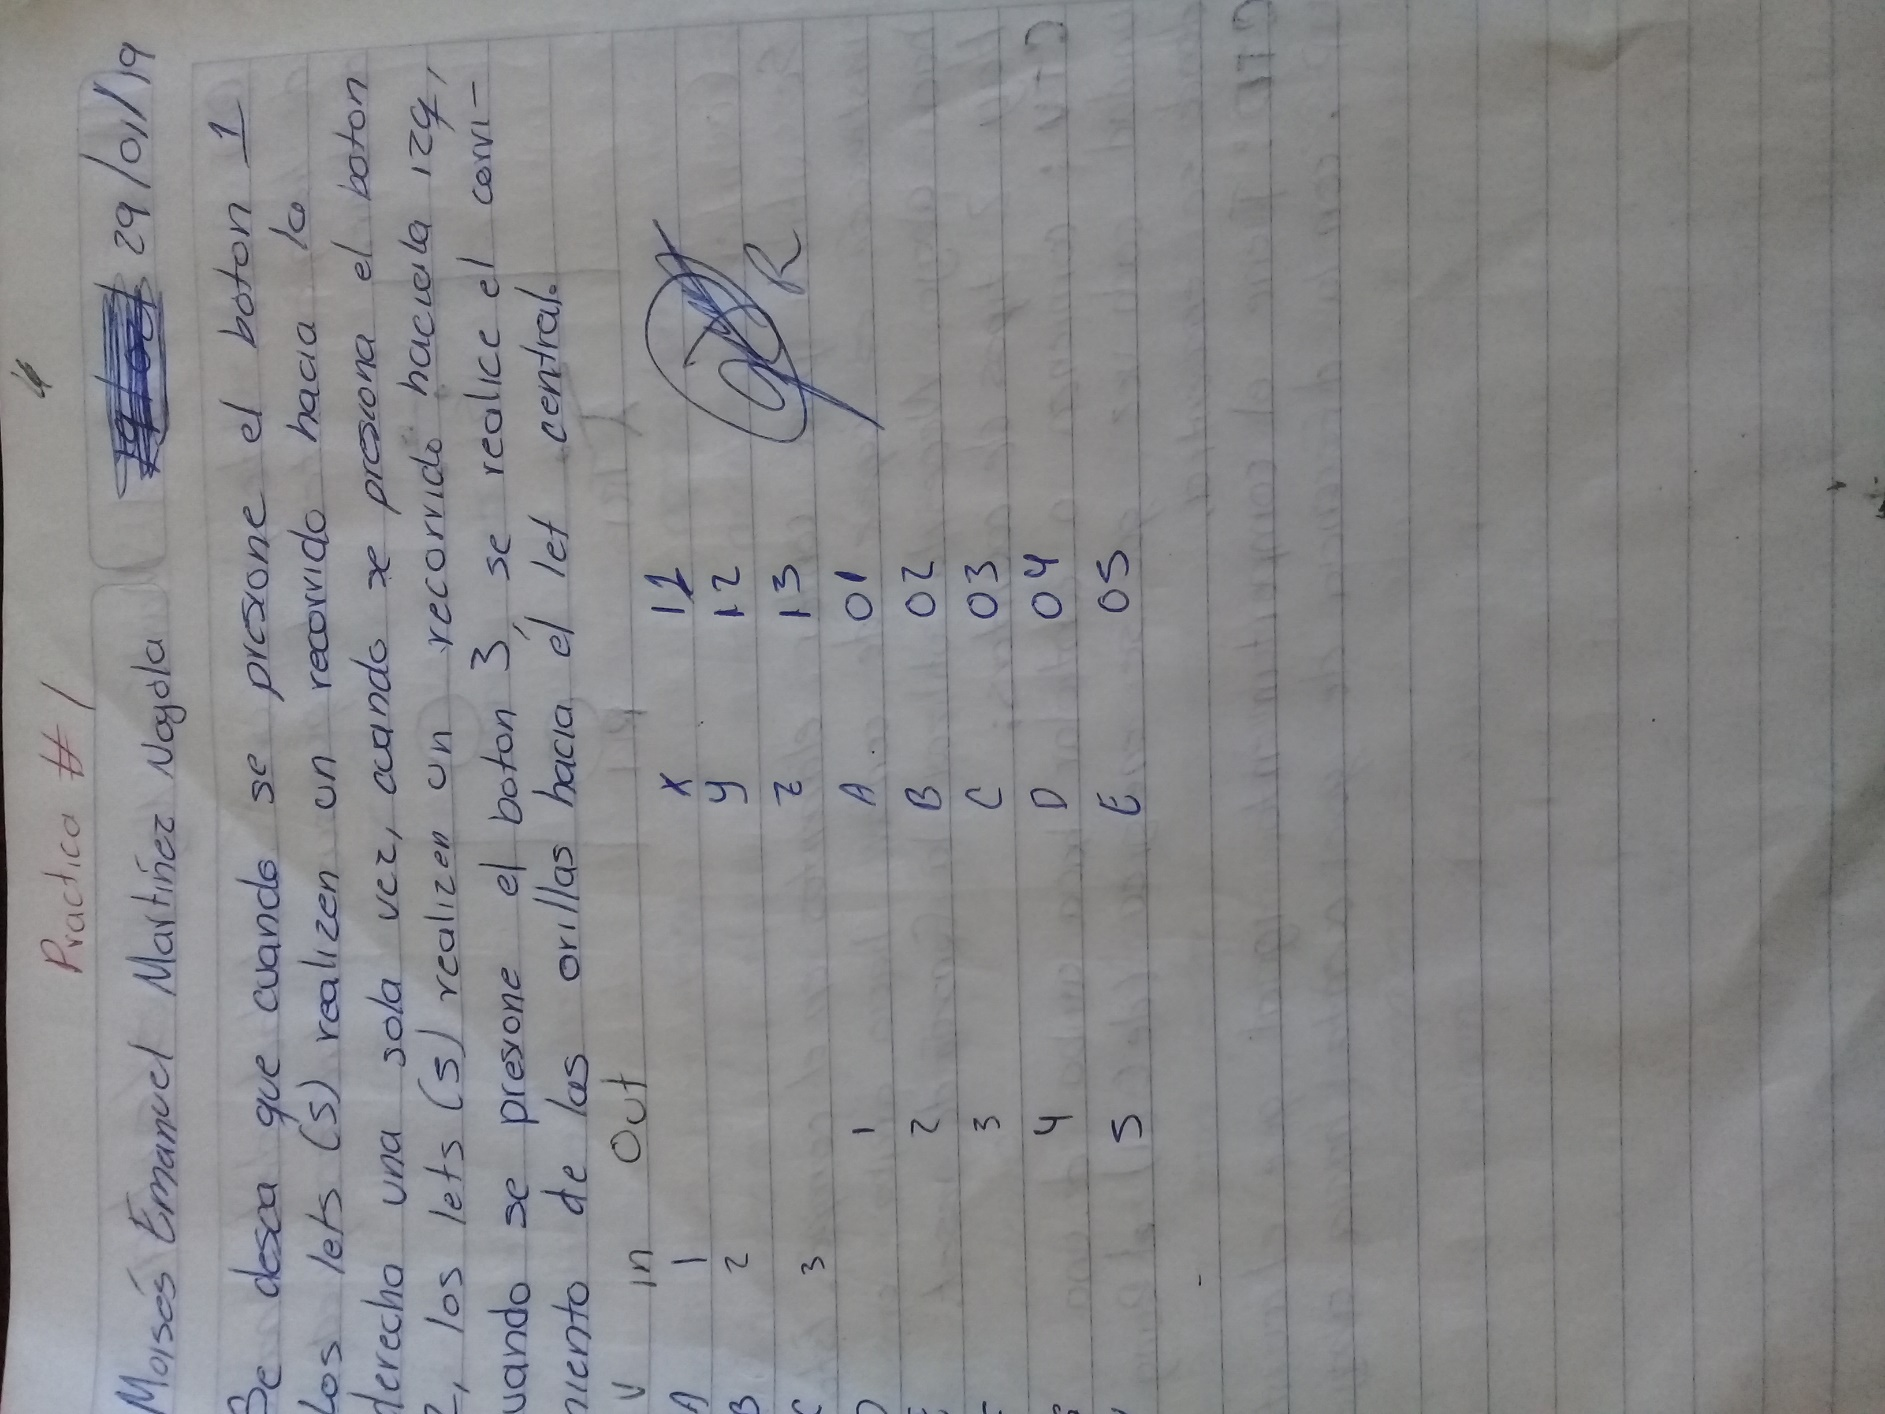 Practica # 1
Moisés Emanuel Martínez Nayola 29/01/19
Se desea que cuando se presione el boton 1
Los lets (5) realizen un recorrido hacia la
derecha una sola vez, cuando se presiona el boton
2, los lets (5) realizen un recorrido hacia la izq,
uando se presione el boton 3, se realice el corri-
miento de las orillas hacia el let central.
V in Out
A 1 x I1
B 2 y I2
C 3 z I3
D 1 A 01
2 B 02
3 C 03
4 D 04
5 E 05
R